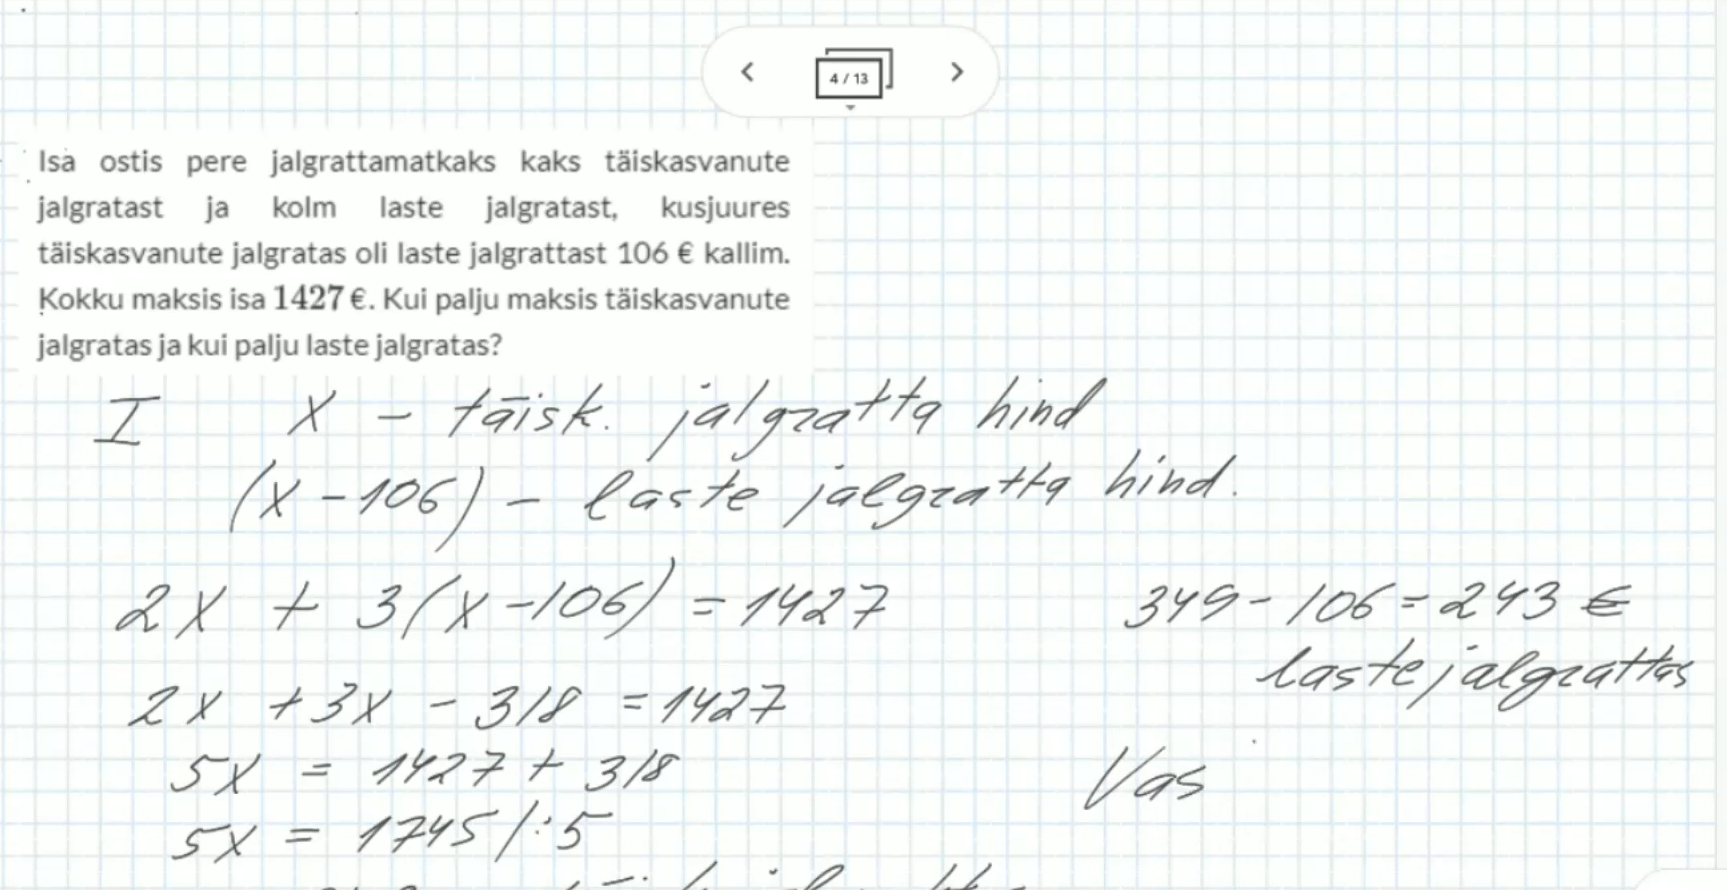 4 / 13
Isa ostis pere jalgrattamatkaks kaks täiskasvanute
jalgratast ja kolm laste jalgratast, kusjuures
täiskasvanute jalgratas oli laste jalgrattast 106 € kallim.
Kokku maksis isa 1427 €. Kui palju maksis täiskasvanute
jalgratas ja kui palju laste jalgratas?
I x - täisk. jalgratta hind
(x - 106) - laste jalgratta hind.
2x + 3(x - 106) = 1427
2x + 3x - 318 = 1427
5x = 1427 + 318
5x = 1745 /:5
349 - 106 = 243 €
laste jalgrattas
Vas